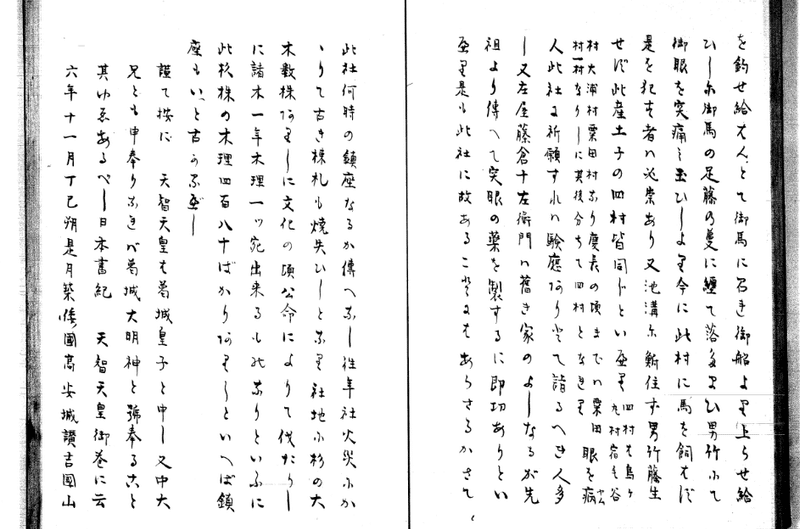 を釣せ給はんとて御馬に召き御船より上らせ給
ひしに御馬の足藤の蔓に纏て落玉ひ男竹にて
御眼を突痛玉ひしより今に此村に馬を飼はず
是を犯す者は必崇あり又池溝に新住す男竹藤生
せず此産土子の四村皆同じとい
四村は鳥ヶ
丸村宿毛谷
村大浦村粟田村なり慶長の頃までは粟田
村一村なりしに其後分ちて四村となきり
眼を病
人此社に祈願すれは驗應ありとて詣るへき人多
し又左屋藤倉十左衛門は舊き家のよしなるが先
祖より傳へて突眼の薬を製するに即功ありとい
是も此社に故あることにもあらさるかさて
此社何時の鎮座なるか傳へなし往年社火災にか
ゝりて古き棟札も燒失ひしとなり社地に杉の大
木數株ありしに文化の頃公命によりて伐たりし
に諸木一年木理一ッ宛出来るものなりといふに
此杉株の木理四百八十ばかりありしといへば鎮
座もいと古かるべし
謹て按に 天智天皇は葛城皇子と申し又中大
兄とも申奉りなきバ葛城大明神と號奉ること
其ゆゑあるべし日本書紀 天智天皇御巻に云
六年十一月丁巳朔是月築倭國高安城讃吉國山